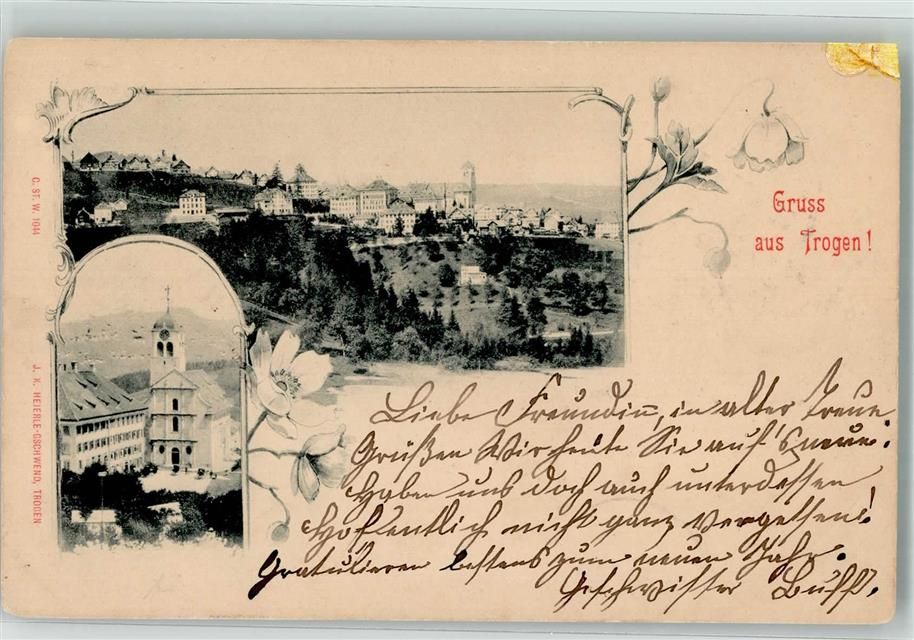 Gruss
aus Trogen!
C. ST. W. 1044
J. K. HEIERLE-GSCHWEND, TROGEN
Liebe Freundin, in alter Treue
Grüßen Wir heute Sie auf's neue:
Haben uns doch auch unterdessen
Hofentlich nicht ganz vergessen!
Gratulieren bestens zum neuen Jahr.
Geschwister Buff.